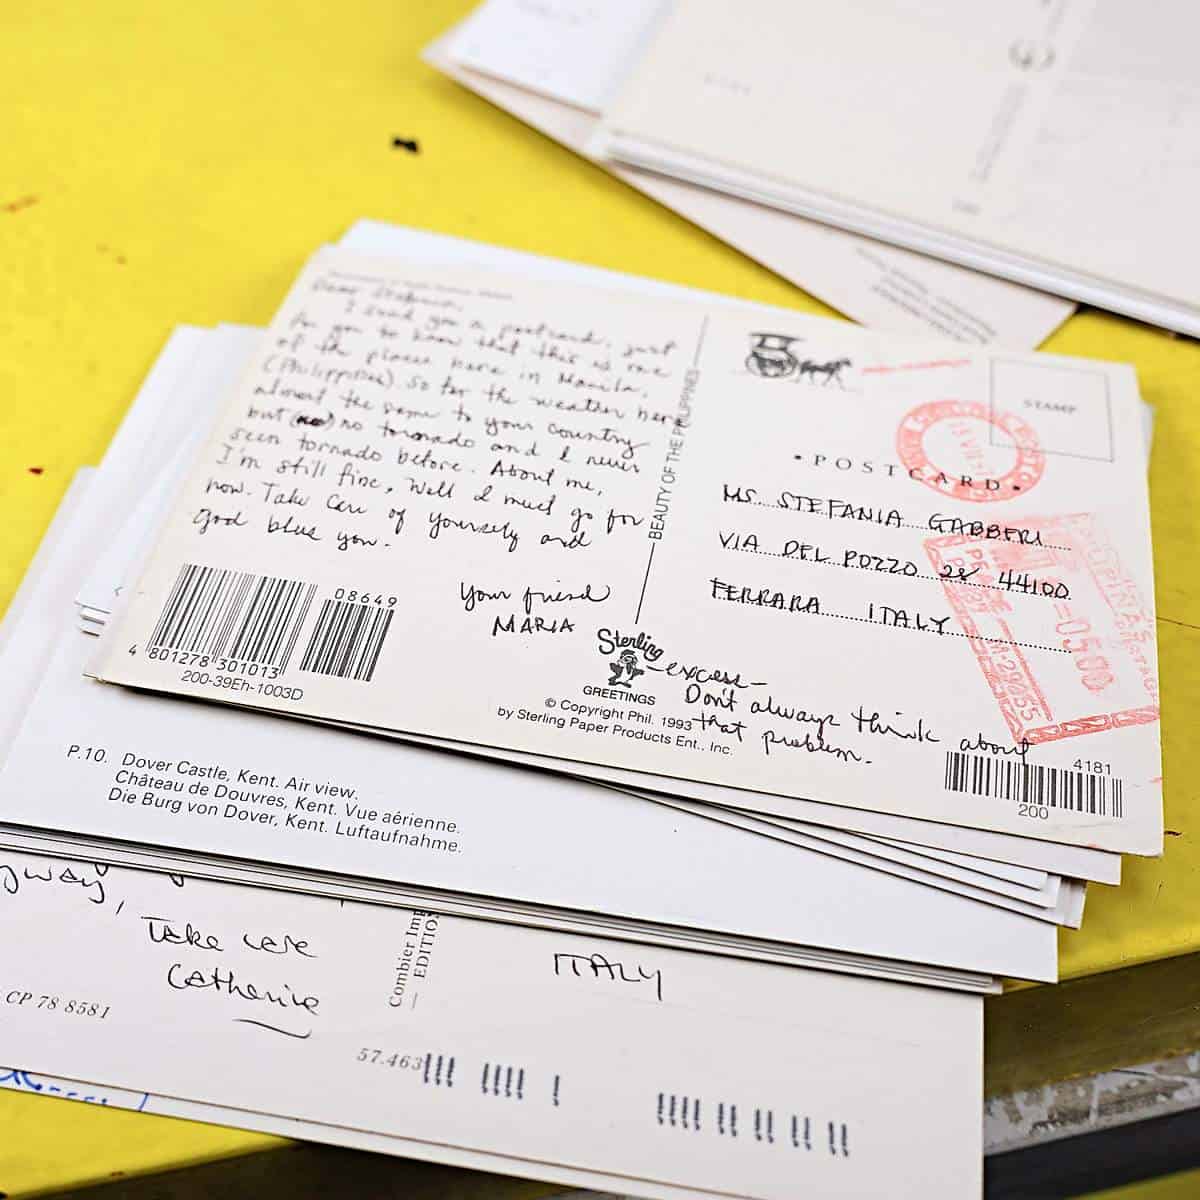 Dear Stefania,
I send you a postcard, just
for you to know that this is one
of the places here in Manila,
(Philippines) so far the weather here
almost the same to your country
but no tornado and I never
seen tornado before. About me,
I'm still fine, Well I must go for
now. Take care of yourself and
God bless you.
Your friend
MARIA
08649
4 801278 301013
200-39Eh-1003D
BEAUTY OF THE PHILIPPINES
STAMP
• POSTCARD •
MS. STEFANIA GABBERI
VIA DEL POZZO 28 44100
FERRARA ITALY
PILIPINAS
=0500
M-29055
Sterling
GREETINGS
© Copyright Phil. 1993
by Sterling Paper Products Ent., Inc.
excess-
Don't always think about
that problem.
4181
200
P.10. Dover Castle, Kent. Air view.
Château de Douvres, Kent. Vue aérienne.
Die Burg von Dover, Kent. Luftaufnahme.
Take care
Catherine
CP 78 8581
Combier Imp
EDITION
ITALY
57.463